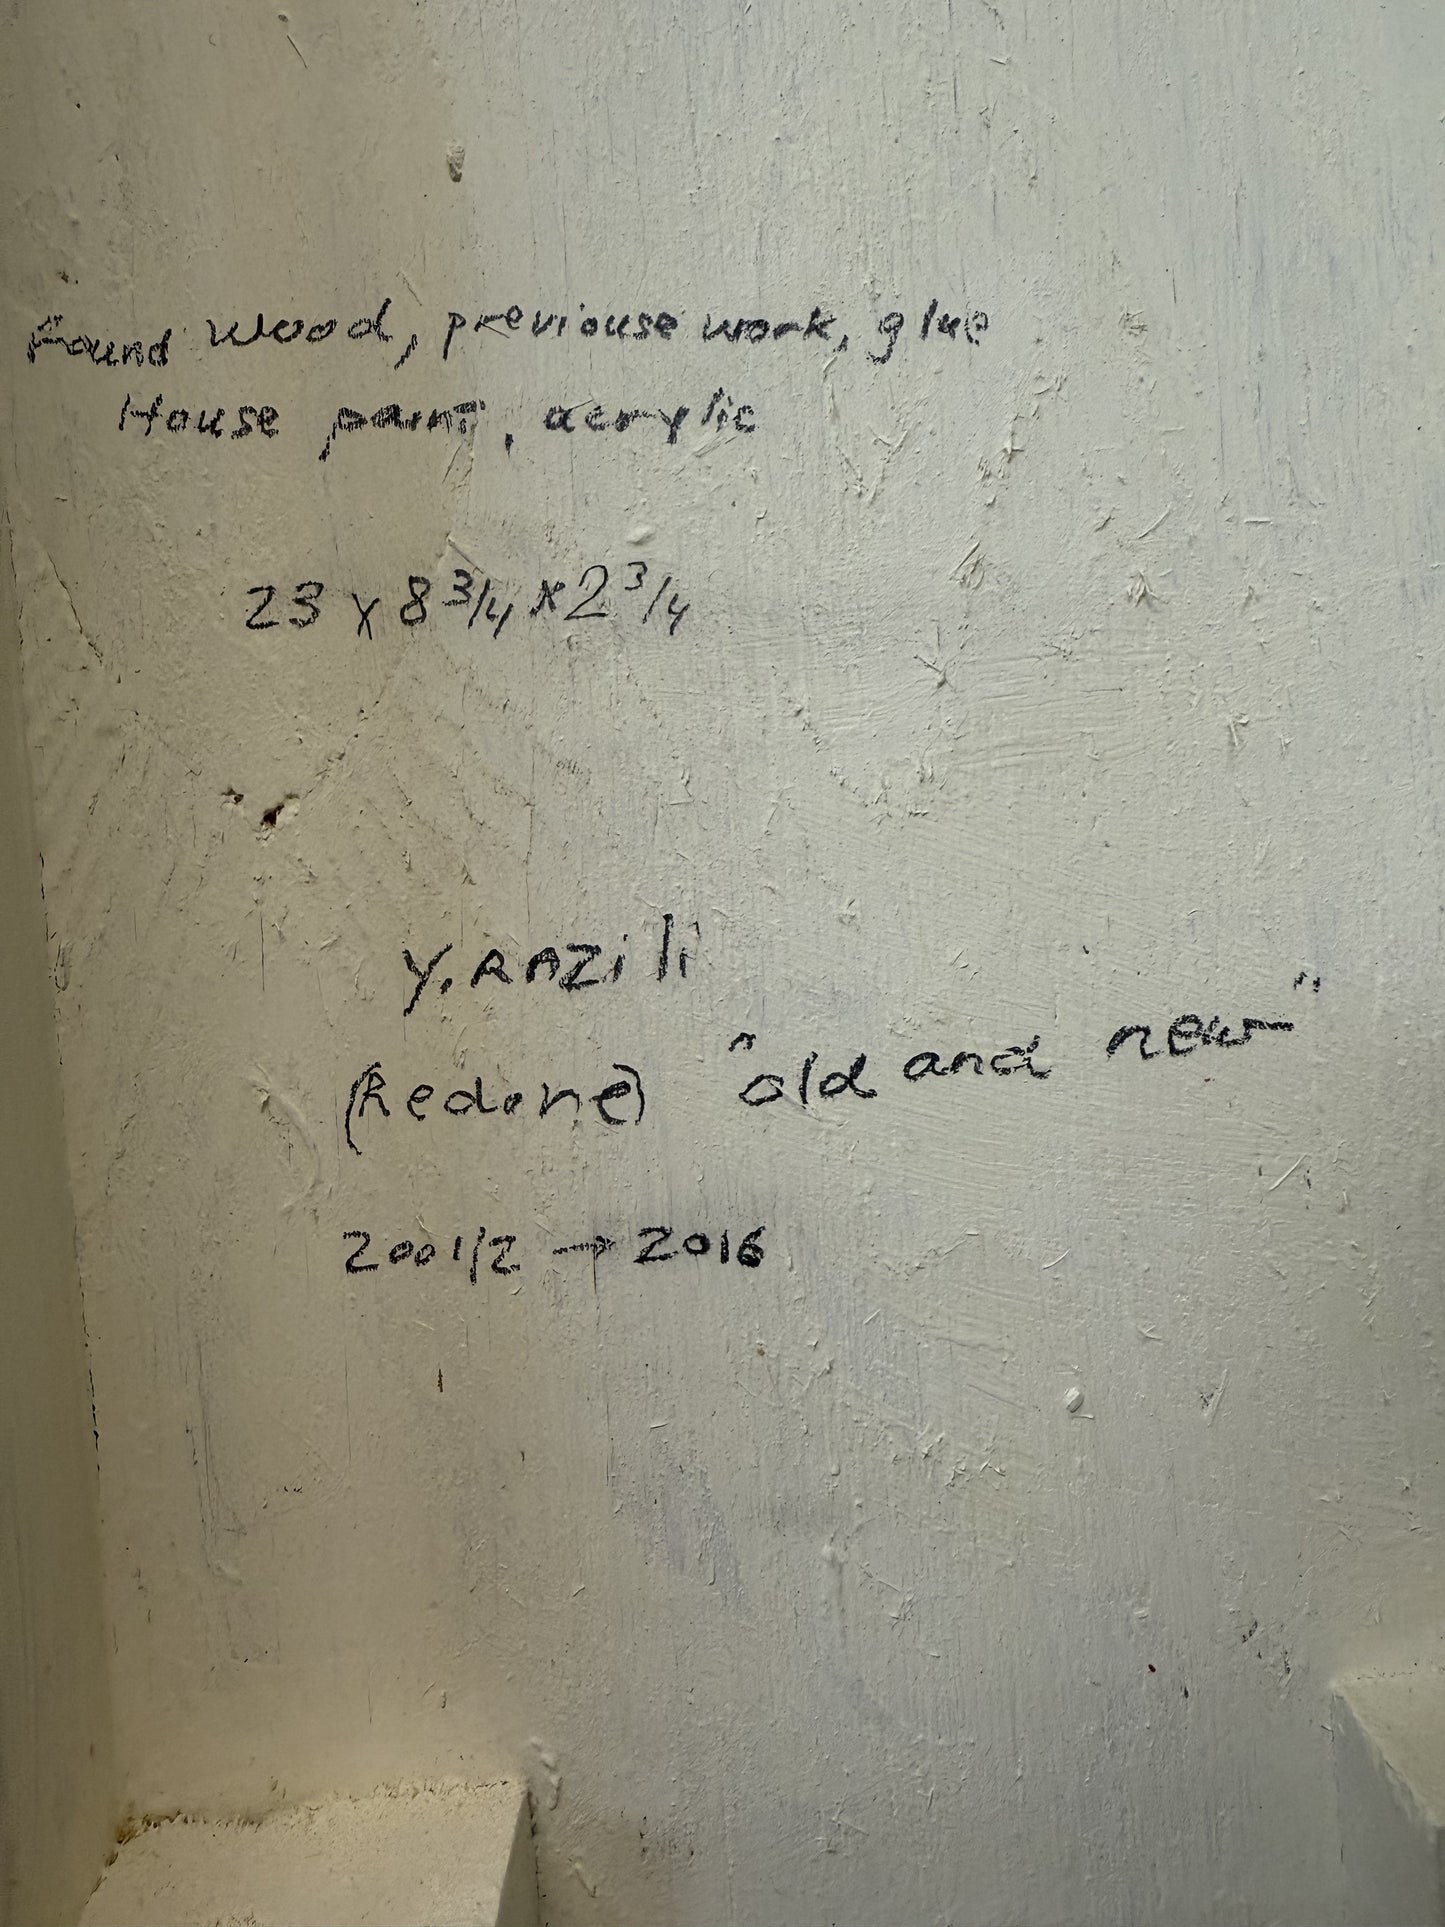 Found wood, previouse work, glue
House paint, acrylic
23 x 8 3/4 x 2 3/4
Y. RAZili
(Redone) "old and new"
2001/2 → 2016